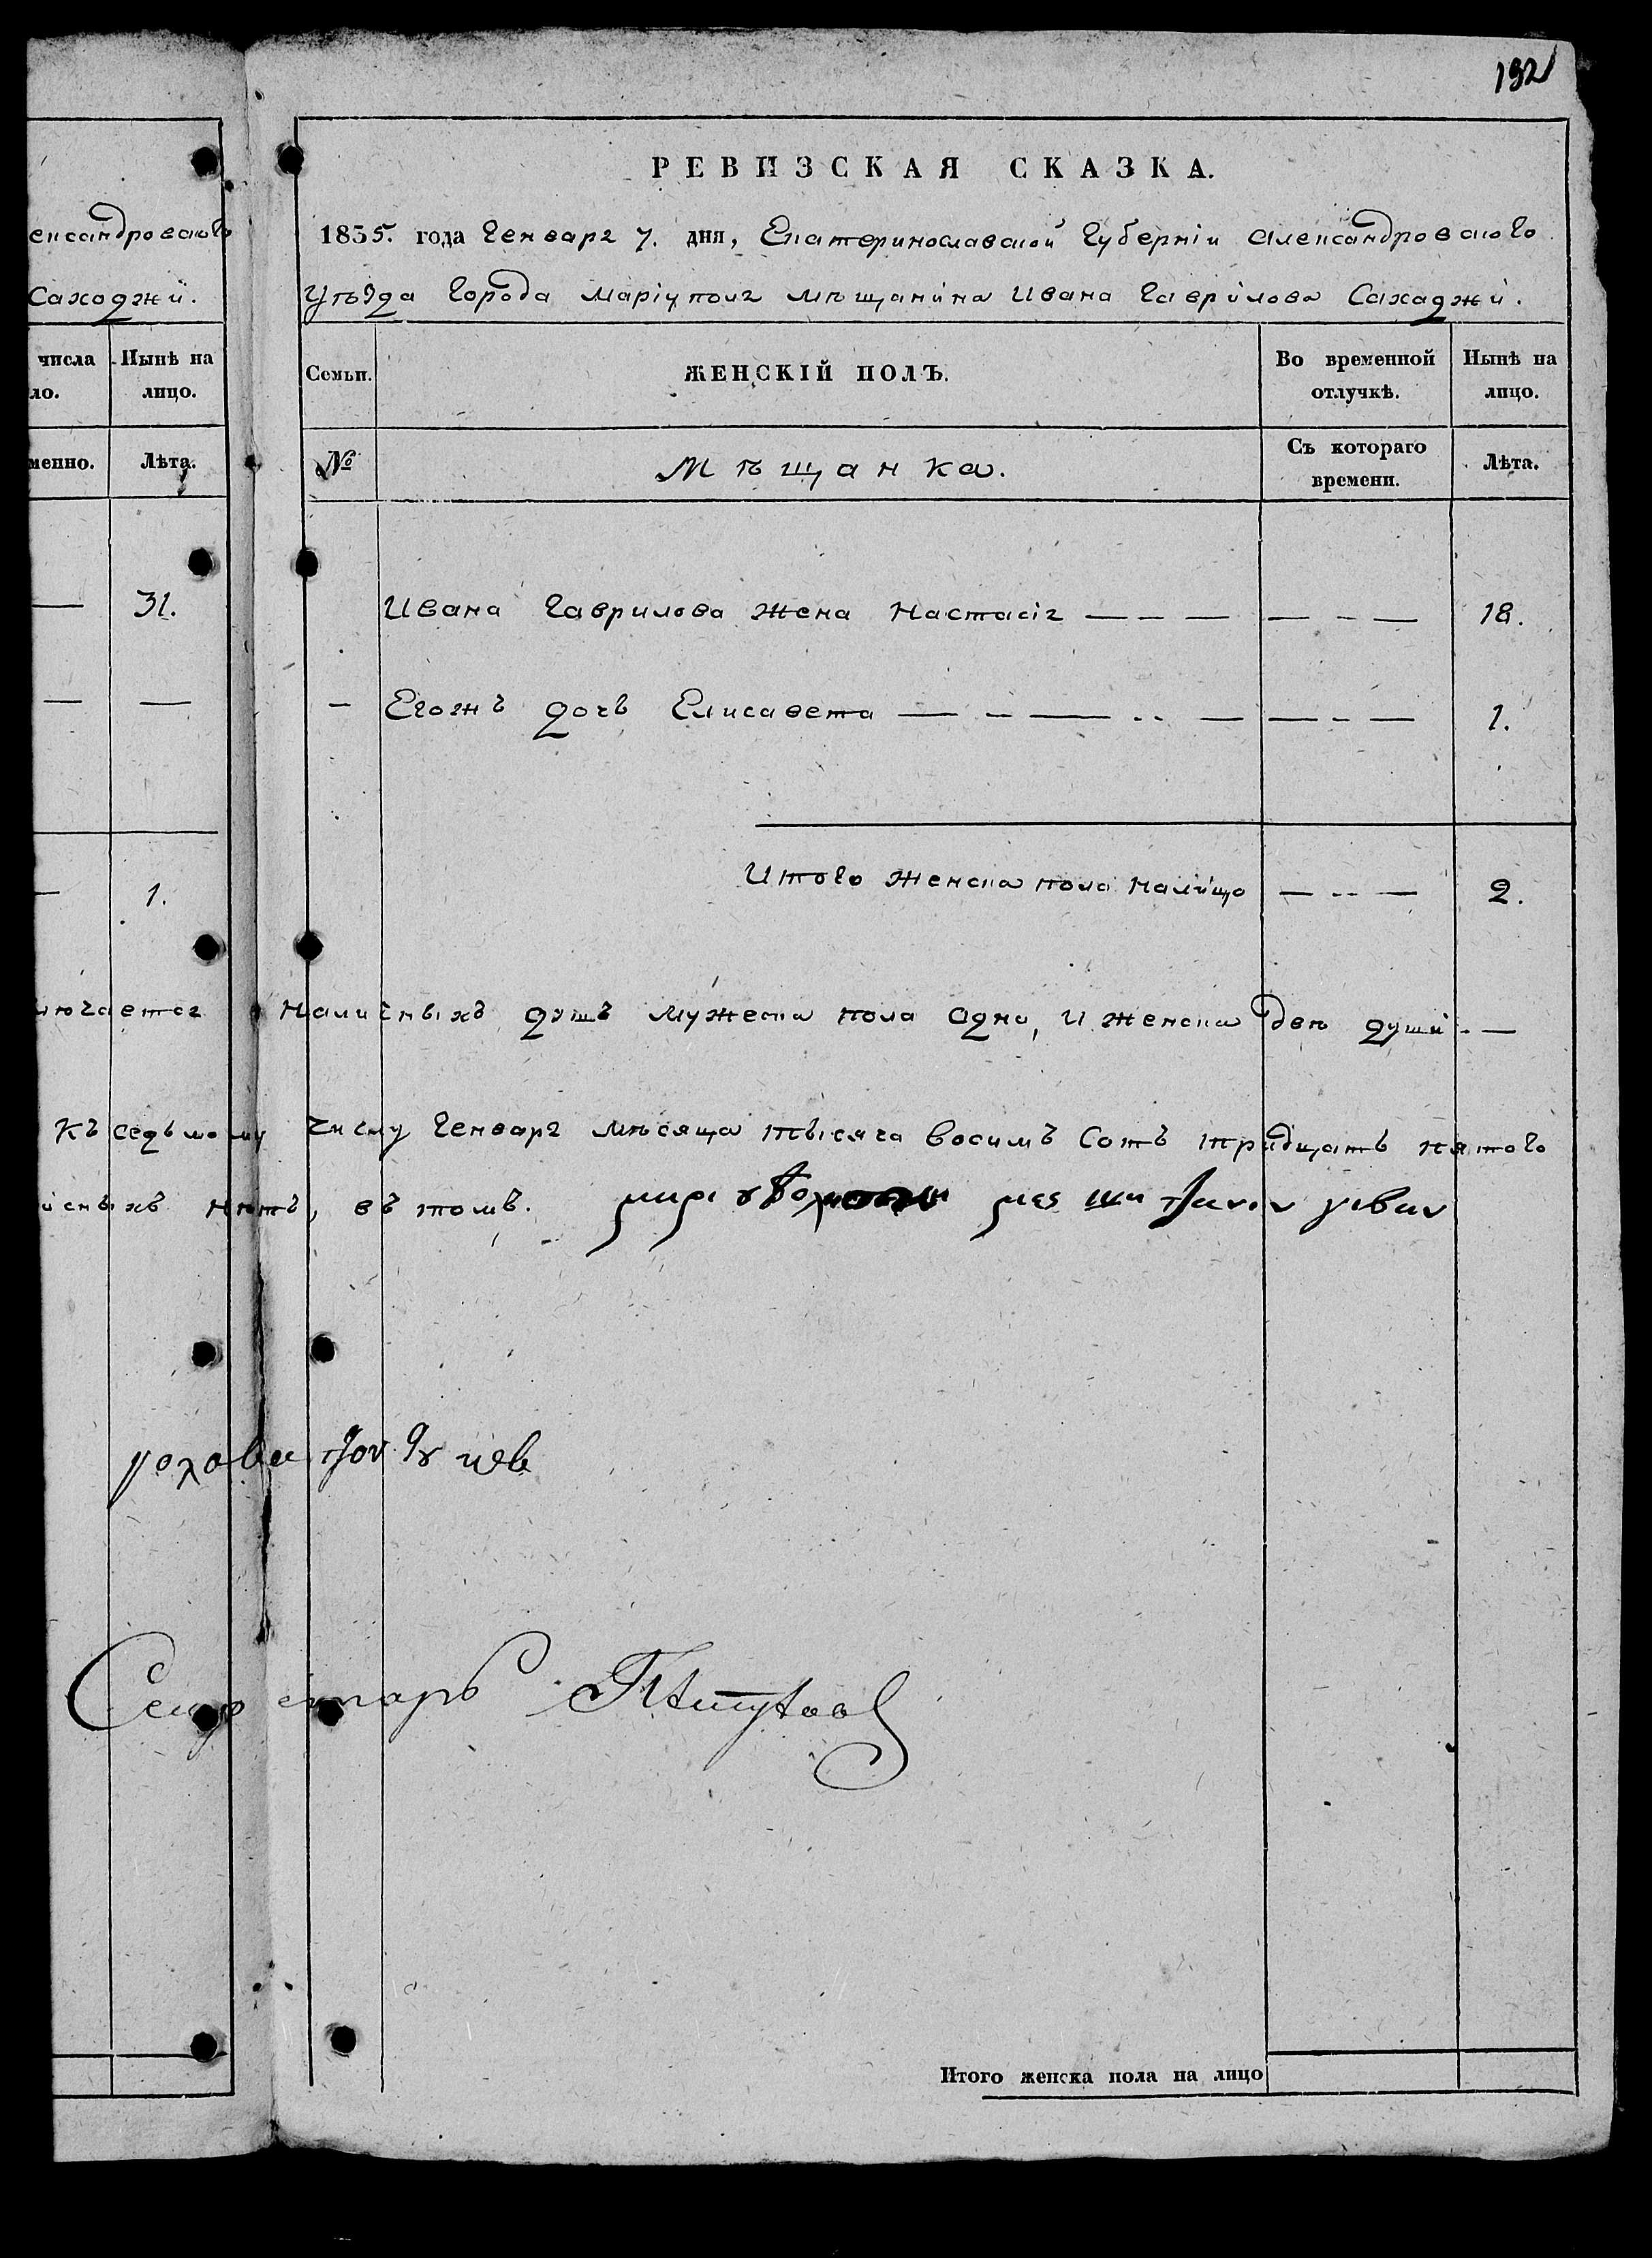 192
ександровскаго
Сахаджи.
числа
ло.
Нынѣ на
лицо.
менно.
Лѣта.
31.
1.
РЕВИЗСКАЯ СКАЗКА.
1835. года Генваря 7. дня, Екатеринославской Губерніи Александровскаго
Уѣзда Города Маріуполя мѣщанина Ивана Гаврилова Сахаджи.
Семьи.
ЖЕНСКІЙ ПОЛЪ.
Во временной
отлучкѣ.
Нынѣ на
лицо.
№
Мѣщанка.
Съ котораго
времени.
Лѣта.
Ивана Гаврилова жена Настасія — - — — - — 18.
- Егожъ дочь Елисавета — - — - - — — - — 1.
Итого женска пола налицо — - — 2.
лючается Наличныхъ душъ мужеска пола одна, и женска двѣ души - —
Къ седьмому числу Генваря мѣсяца тысяча восимъ сотъ тридцать пятого
исныхъ нѣтъ, въ томъ.
Секретарь
Итого женска пола на лицо